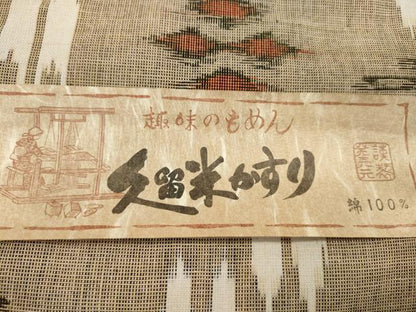 趣味のもめん
久留米かすり
謹製
綿100%